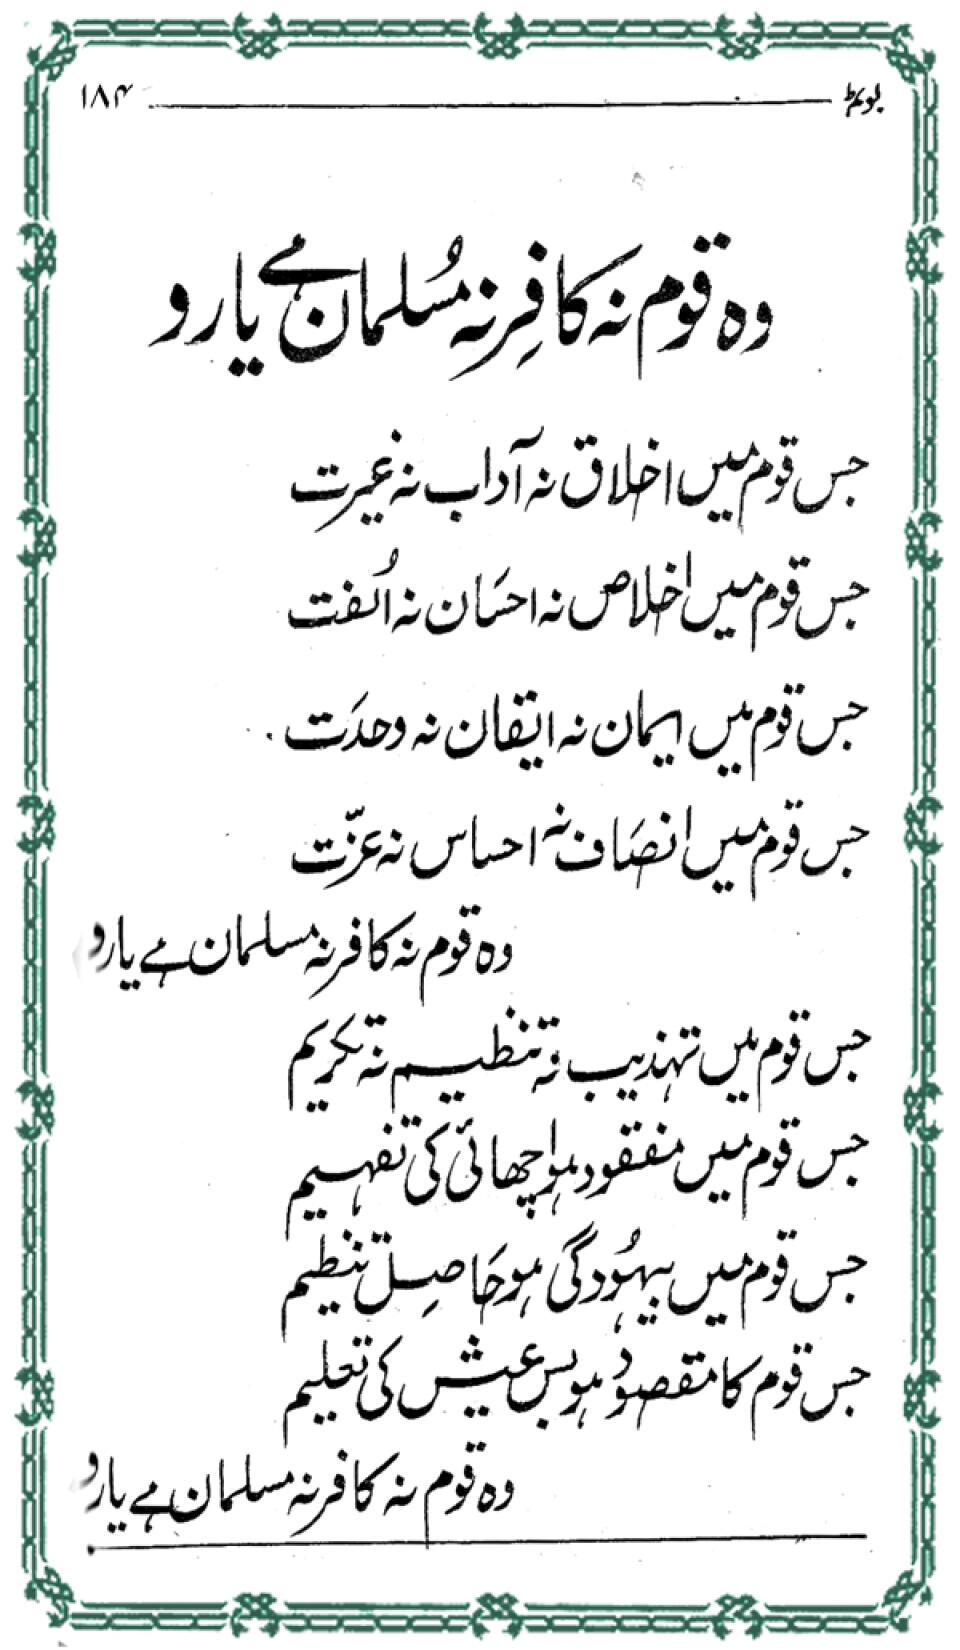 ۱۸۴
وہ قوم نہ کافِر نہ مُسلمان ہے یارو
جس قوم میں اخلاق نہ آداب نہ غیرت
جس قوم میں اخلاص نہ احسَان نہ اُلفت
جس قوم میں ایمان نہ ایقان نہ وحدَت
جس قوم میں انصَاف نہ احساس نہ عزّت
وہ قوم نہ کافر نہ مسلمان ہے یارو
جس قوم میں تہذیب نہ تنظیم نہ تکریم
جس قوم میں مفقود ہو اچھائی کی تفہیم
جس قوم میں بیہُودگی ہو حَاصِل تنظیم
جس قوم کا مقصود ہو بس عیش کی تعلیم
وہ قوم نہ کافر نہ مسلمان ہے یارو